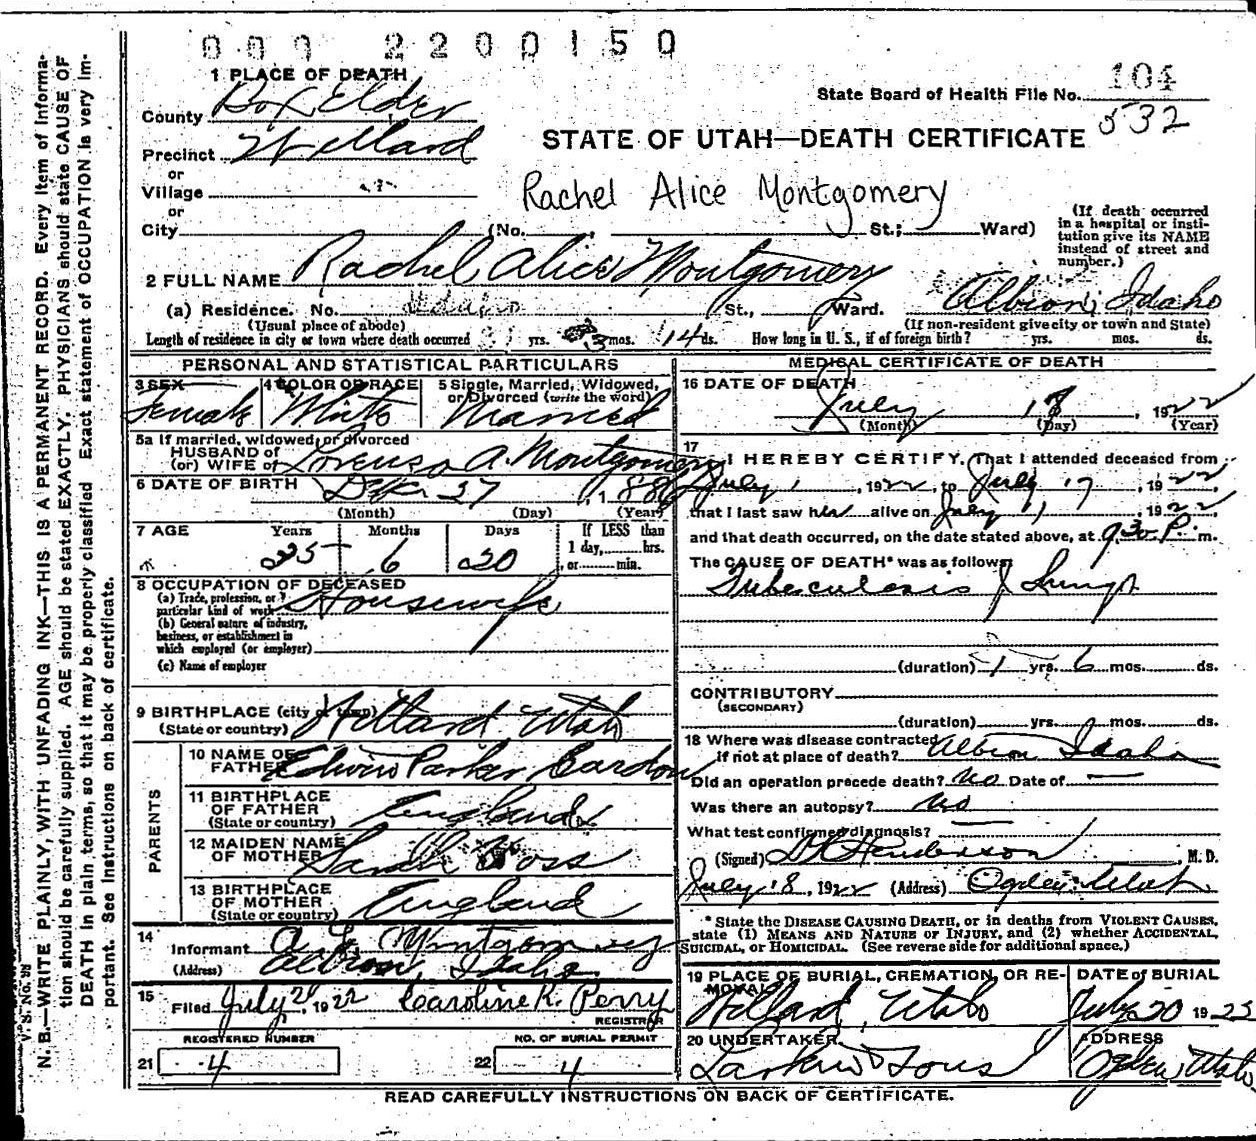 000 2200150
1 PLACE OF DEATH
County Box Elder
State Board of Health File No. 104
532
Precinct Willard
STATE OF UTAH—DEATH CERTIFICATE
or
Village
Rachel Alice Montgomery
or
City (No. St.; Ward)
(If death occurred in a hospital or institution give its NAME instead of street and number.)
2 FULL NAME Rachel Alice Montgomery
(a) Residence. No. Idaho St., Ward. Albion, Idaho
(Usual place of abode) (If non-resident give city or town and State)
Length of residence in city or town where death occurred yrs. 3 mos. 14 ds. How long in U. S., if of foreign birth? yrs. mos. ds.
PERSONAL AND STATISTICAL PARTICULARS
3 SEX 4 COLOR OR RACE 5 Single, Married, Widowed, or Divorced (write the word)
Female White Married
5a If married, widowed, or divorced
HUSBAND of
(or) WIFE of Lorenzo A. Montgomery
6 DATE OF BIRTH Dec 27, 1886
(Month) (Day) (Year)
7 AGE Years Months Days If LESS than
1 day, hrs.
or min.
6 20
8 OCCUPATION OF DECEASED
(a) Trade, profession, or
particular kind of work Housewife
(b) General nature of industry,
business, or establishment in
which employed (or employer)
(c) Name of employer
9 BIRTHPLACE (city or town) Willard Utah
(State or country)
PARENTS
10 NAME OF
FATHER Edwin Parker
11 BIRTHPLACE
OF FATHER England
(State or country)
12 MAIDEN NAME
OF MOTHER Sarah
13 BIRTHPLACE
OF MOTHER England
(State or country)
14
Informant A. L. Montgomery
(Address) Albion, Idaho
15
Filed July 20, 1922 Caroline K. Perry
REGISTRAR
REGISTERED NUMBER NO. OF BURIAL PERMIT
21 4 22 4
MEDICAL CERTIFICATE OF DEATH
16 DATE OF DEATH
July 18, 1922
(Month) (Day) (Year)
17
I HEREBY CERTIFY, That I attended deceased from
July 1, 1922, to July 17, 1922
that I last saw her alive on July 1, 1922
and that death occurred, on the date stated above, at 930 P. m.
The CAUSE OF DEATH* was as follows:
Tuberculosis of Lungs
(duration) 1 yrs. 6 mos. ds.
CONTRIBUTORY
(SECONDARY)
(duration) yrs. mos. ds.
18 Where was disease contracted
if not at place of death? Albion Idaho
Did an operation precede death? No Date of —
Was there an autopsy? No
What test confirmed diagnosis? —
(Signed) Henderson, M. D.
July 18, 1922 (Address) Ogden Utah
* State the DISEASE CAUSING DEATH, or in deaths from VIOLENT CAUSES,
state (1) MEANS AND NATURE OF INJURY, and (2) whether ACCIDENTAL,
SUICIDAL, or HOMICIDAL. (See reverse side for additional space.)
19 PLACE OF BURIAL, CREMATION, OR RE-
MOVAL DATE of BURIAL
Willard, Utah July 20 1922
20 UNDERTAKER ADDRESS
Larkin & Sons Ogden, Utah.
READ CAREFULLY INSTRUCTIONS ON BACK OF CERTIFICATE.
V. S. No.
N. B.—WRITE PLAINLY, WITH UNFADING INK—THIS IS A PERMANENT RECORD. Every item of informa-
tion should be carefully supplied. AGE should be stated EXACTLY. PHYSICIANS should state CAUSE OF
DEATH in plain terms, so that it may be properly classified. Exact statement of OCCUPATION is very im-
portant. See instructions on back of certificate.